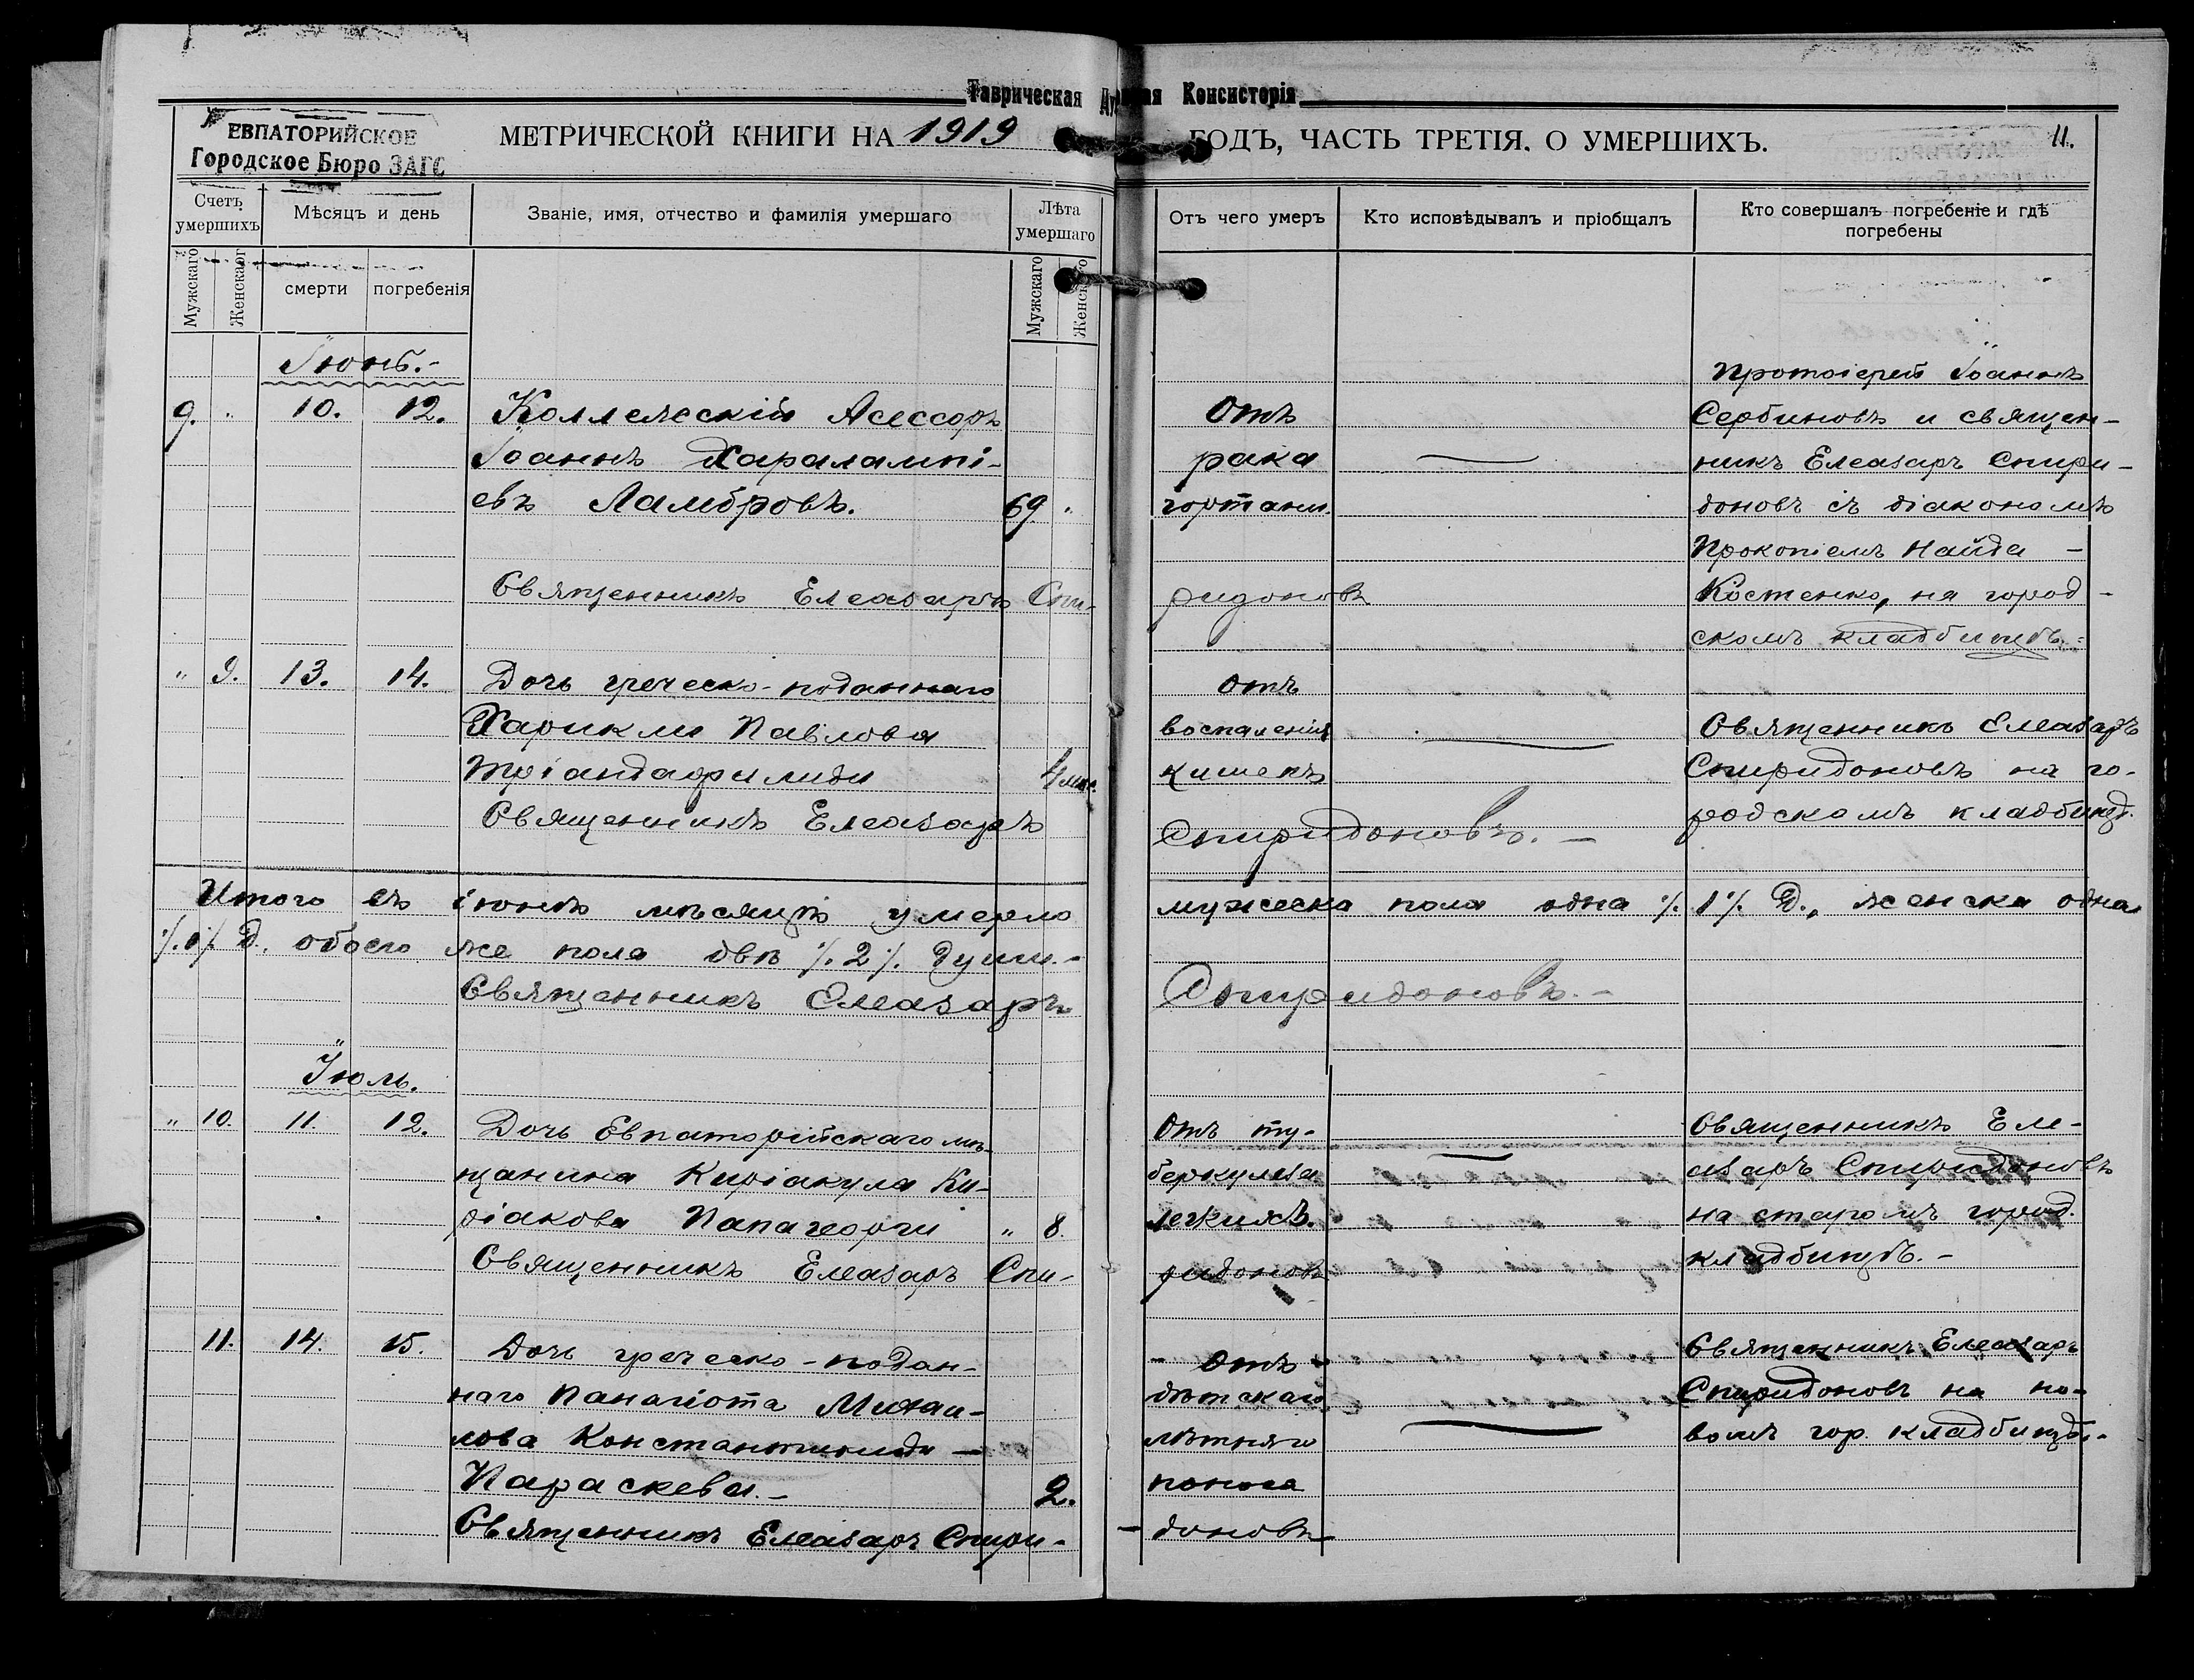 Таврическая Духовная Консисторія
ЕВПАТОРИЙСКОЕ
Городское Бюро ЗАГС
МЕТРИЧЕСКОЙ КНИГИ НА 1919
ГОДЪ, ЧАСТЬ ТРЕТІЯ, О УМЕРШИХЪ.
11.
Счетъ умершихъ
Мѣсяцъ и день
Званіе, имя, отчество и фамилія умершаго
Лѣта умершаго
Отъ чего умеръ
Кто исповѣдывалъ и пріобщалъ
Кто совершалъ погребеніе и гдѣ погребены
Мужскаго
Женскаго
смерти
погребенія
Мужскаго
Женскаго
Іюнь.-
9. " 10. 12. Коллежскій Асессоръ
Іоаннъ Харалампі-
евъ Ламбровъ. 69. "
Священникъ Елеазаръ Спи-
ридоновъ
Отъ
рака
гортани.
Протоіерей Іоаннъ
Сербиновъ и священ-
никъ Елеазаръ Спири-
доновъ съ діакономъ
Прокопіемъ Найда-
Костенко, на город-
скомъ кладбищѣ.
" 9. 13. 14. Дочь греческо-поданнаго
Харикли Павлова
Тріандафилиди 4 мѣс.
Священникъ Елеазаръ
Спиридоновъ.-
Отъ
воспаленія
кишекъ
Священникъ Елеазаръ
Спиридоновъ на го-
родскомъ кладбищ.
Итого въ іюнѣ мѣсяцѣ умерло мужеска пола одна /.1/. д., женска одна
/.1/. д. обоего же пола двѣ /.2/. души.-
Священникъ Елеазаръ Спиридоновъ.-
Іюль.
" 10. 11. 12. Дочь Евпаторійскаго мѣ-
щанина Киріакула Ки-
ріакова Папагеорги " 8.
Священникъ Елеазаръ Спи-
ридоновъ
Отъ ту-
беркулеза
легкихъ.
Священникъ Еле-
азаръ Спиридоновъ
на старомъ город.
кладбищѣ.-
11. 14. 15. Дочь греческо-подан-
наго Панагіота Михаи-
лова Константиниди-
Параскева.- 2.
Священникъ Елеазаръ Спири-
доновъ
Отъ
дѣтскаго
лѣтняго
поноса
Священникъ Елеазаръ
Спиридоновъ на но-
вомъ гор. кладбищѣ.-